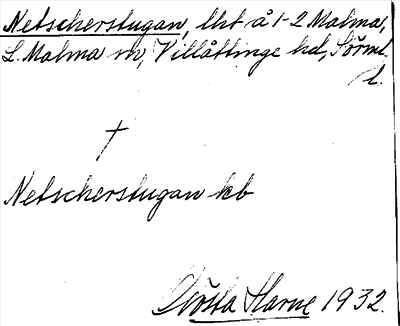 Netscherstugan, lht å 1-2 Malma,
L. Malma sn, Villåttinge hd, Sörml.
l.
†
Netscherstugan kb
Gösta Harne 1932.